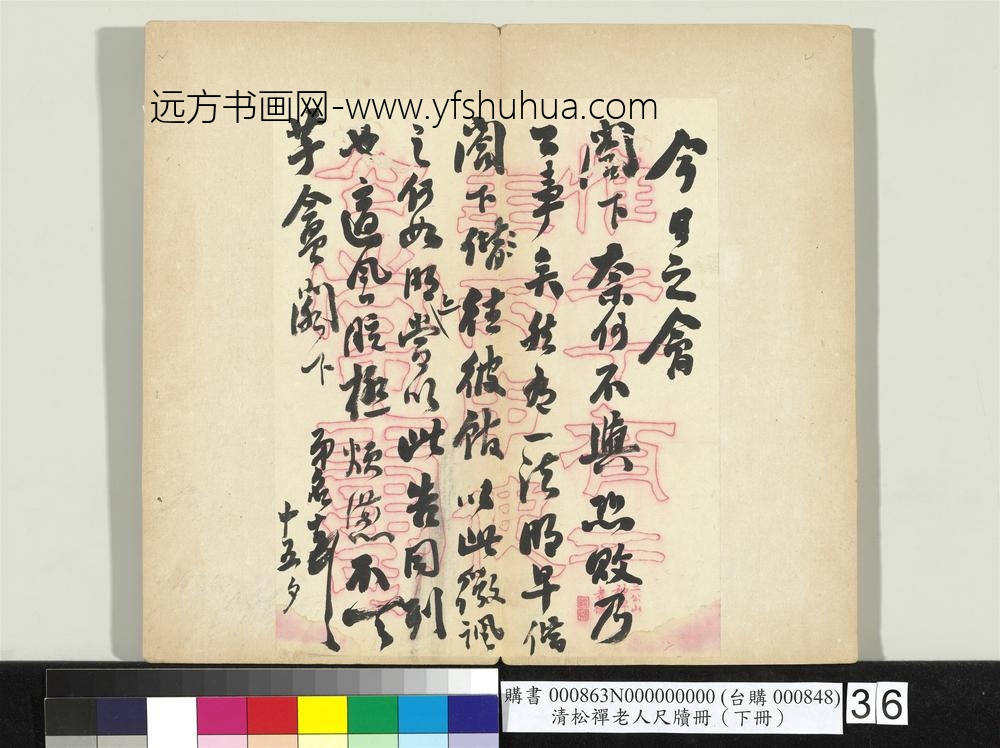 远方书画网-www.yfshuhua.com
今日之會
閣下奈何不與恐敗乃
公事矣然有一法明早偕
閣下偕往彼館以此微諷
之何如明當以此告同列
也適風眩極煩懣不一一
芋盦閣下
弟名 頓
十五夕
購書 000863N000000000 (台購 000848)
清松禪老人尺牘冊(下冊)
36